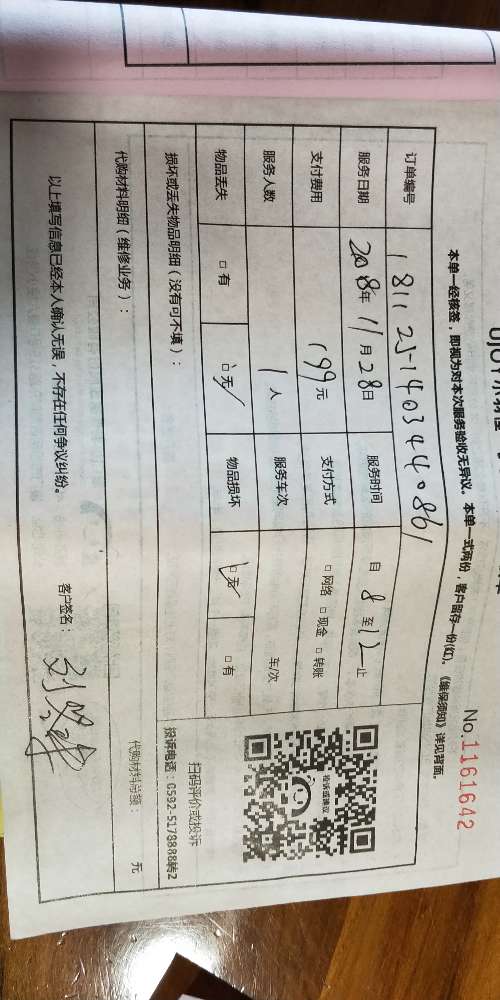 No.1161642
本单一经核签，即视为对本次服务验收无异议。本单一式两份，客户留存一份(红)。《维保须知》详见背面。
订单编号 181125-1403440861
服务日期 2018年 11月 28日 服务时间 自 8 至 12 止
支付费用 199元 支付方式 □网络 □现金 □转账
服务人数 1人 服务车次 车/次
物品丢失 □有 □无✓ 物品损坏 □无✓ □有
投诉或建议
扫码评价或投诉
投诉电话：0592-5178888转2
损坏或丢失物品明细（没有可不填）：
代购材料明细（维修业务）： 代购材料总额： 元
以上填写信息已经本人确认无误，不存在任何争议纠纷。 客户签名：